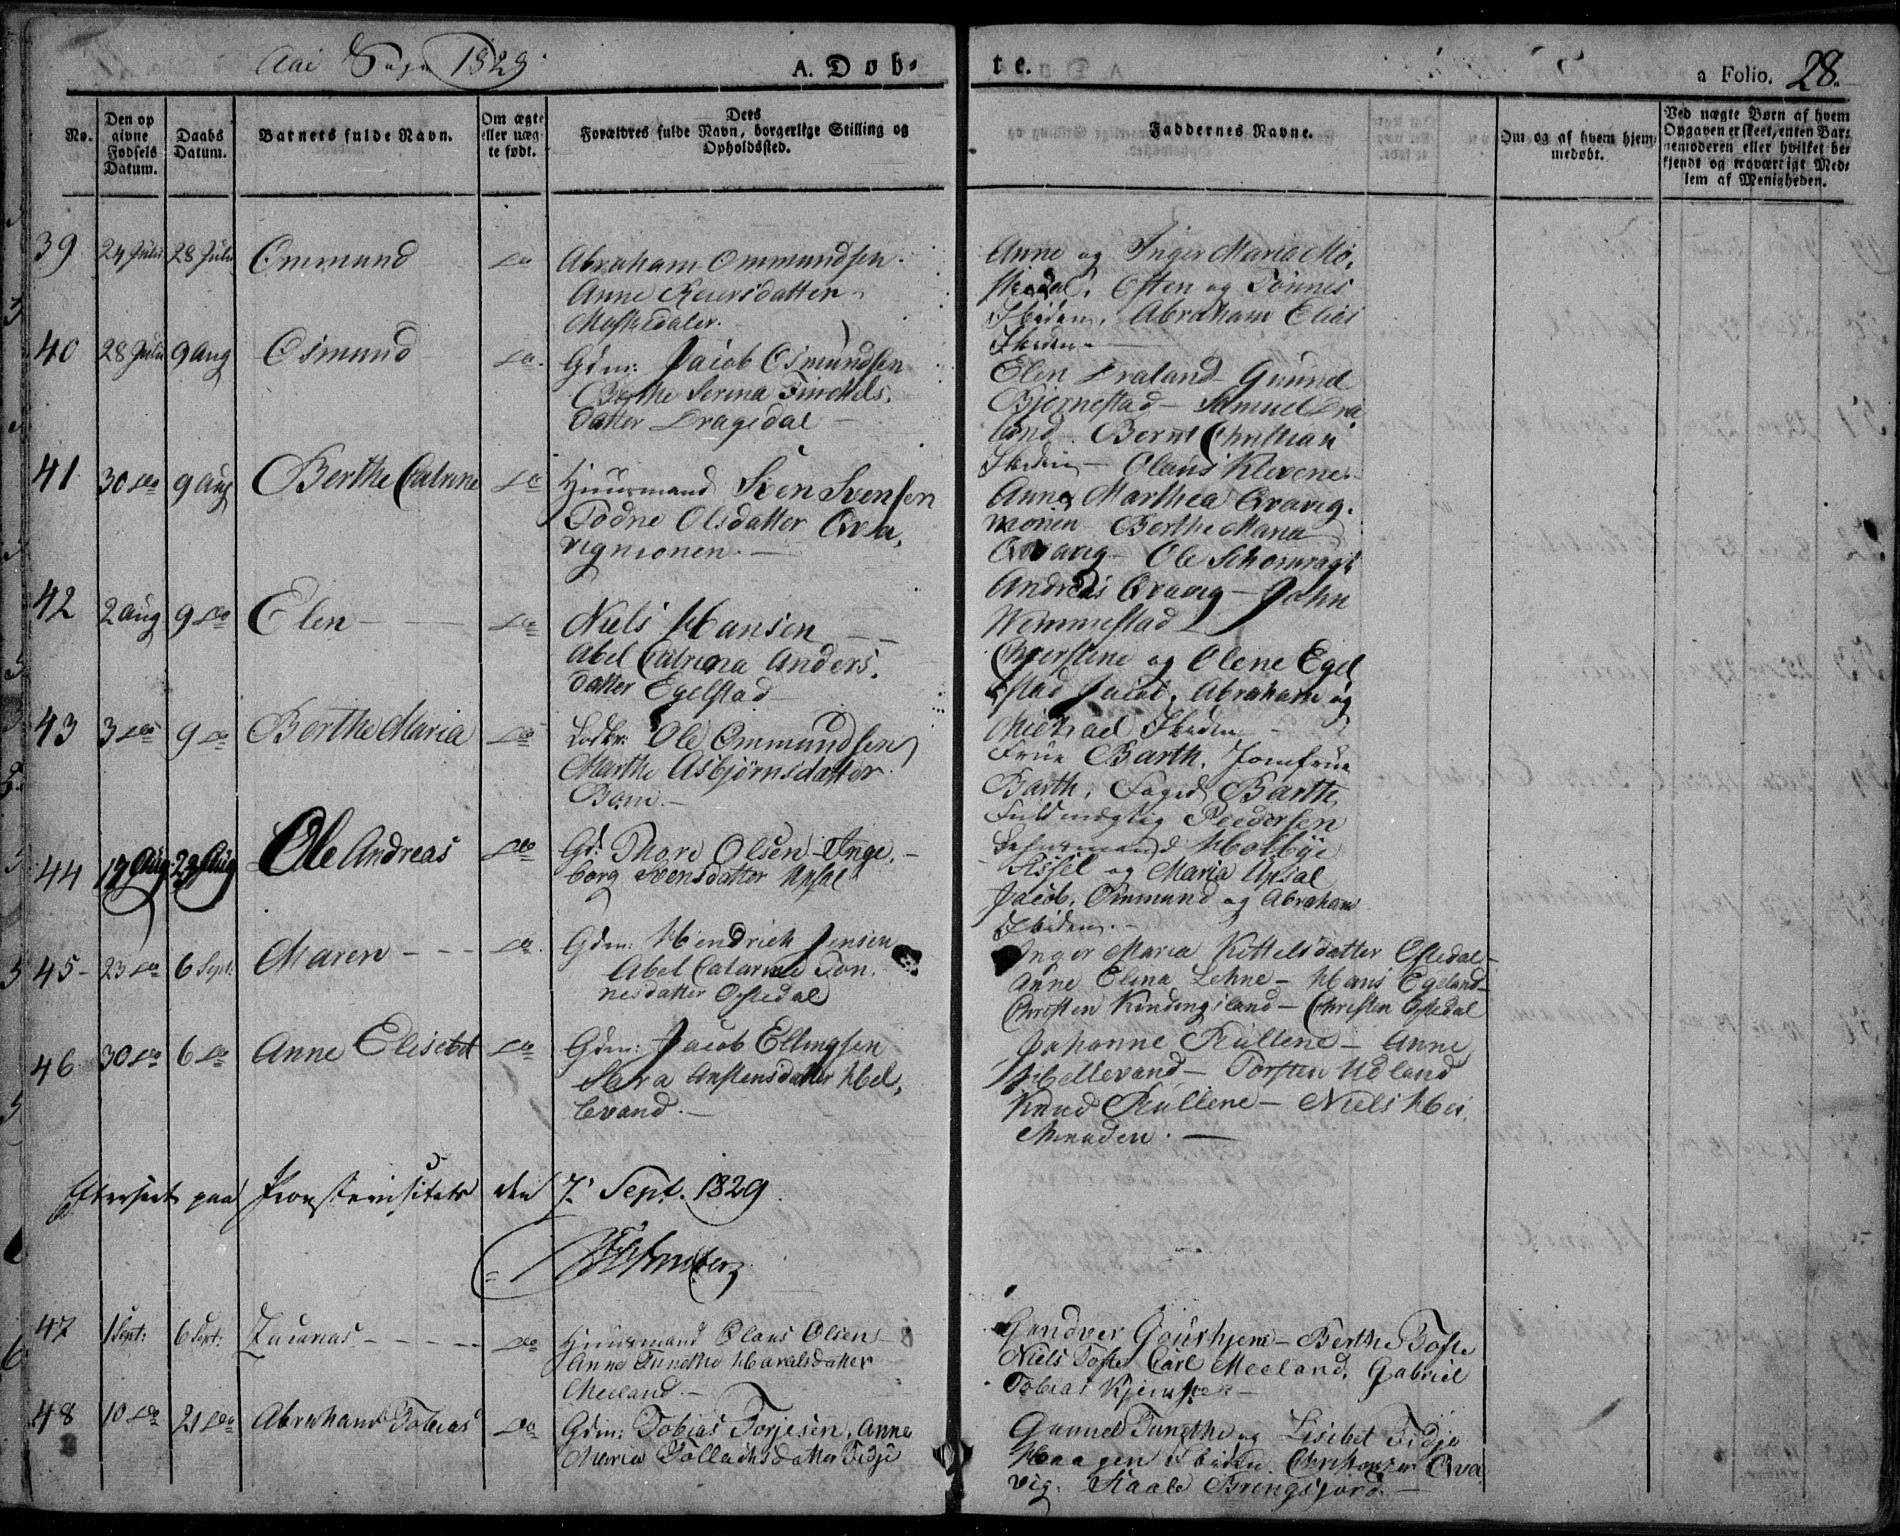 Aai Sogn 1829
A. Døb-
te.
a Folio. 28.
No.
Den op
givne
Fødsels
Datum.
Daabs
Datum.
Barnets fulde Navn.
Om ægte
eller uæg-
te født.
Dets
Forældres fulde Navn, borgerlige Stilling og
Opholdssted.
Faddernes Navne.
Om og af hvem hjem-
medøbt.
Ved uægte Børn af hvem
Opgaven er skeet, enten Bar-
nemoderen eller hvilket be-
kjendt og troværdigt Med-
lem af Menigheden.
39 24 Juli 28 Juli Ommund do Abraham Ommundsen
Anne Reiersdatter
Moskedalen.
Anne og Inger Maria Mo-
skedal. Osten og Tønnes
Ibiden, Abraham Elias
Ibiden
40 28 Juli 9 Aug Osmund do. Gdm: Jacob Osmundsen
Berthe Serina Tinchels-
datter Dragedal
Elen Draland Gunild
Bjørnestad - Samuel Dra
land. Bernt Christian
Ibiden - Olaus Klevene
41 30 do 9 Aug Berthe Catrine do Huusmand Sven Svensen
Todne Olsdatter Qva-
vigmonen.
Anne Marthea Qvavig-
monen Berthe Maria
Qvavig - Ole
Andreas Qvavig - John
Vemmestad
42 2 Aug 9 do Elen do Niels Hansen
Abel Catrina Anders-
datter Egelstad
Cherstine og Olene Egel
stad Jacob, Abraham og
Michael Ibiden
43 3 do 9 do Berthe Maria do Lods: Ole Ommundsen
Marthe Asbjørnsdatter
Bom.
Frue Barth. Jomfrue
Barth, Foged Barth,
Fuldmægtig Pedersen
Lehnsmand Holbye
44 19 Aug 23 Aug Ole Andreas do Gd: Thore Olsen Inge-
borg Svensdatter Upsal
Sissel og Maria Upsal
Jacob, Ommund og Abraham
Ibiden.
45 23 do 6 Sept: Maren do. Gdm: Hendrich Jensen
Abel Catarine Tøn-
nesdatter Ostedal
Inger Maria Kittelsdatter Ostedal
Anne Elena Lehne - Hans Egeland
Christen Kindingsland - Christen Ostedal
46 30 do 6 do Anne Elisebet do Gdm: Jacob Ellingsen
Sara Anstensdatter Hel-
levand.
Johanne Rullene - Anne
Hellevand - Torsten Udland
Knud Rullene - Niels Hei-

Efterseet paa Prousteivisitats den 7. Sept. 1829.
47 1 Sept: 6 Sept: Zacarias do Huusmand Olaus Olsen
Anne Tunethe Haralsdatter
Meeland.
Gundver - Berthe Tofte
Niels Tofte Carl Meeland, Gabriel
Tobias
48 10 do 21 do Abraham Tobias do Gdm: Tobias Torjesen. Anne
Maria Tollachsdatter Fidje
Gunuel Tunethe og Lisebet Fidje
Haagen Ibiden. Christopher Qva
vig. Staale Bringsjord